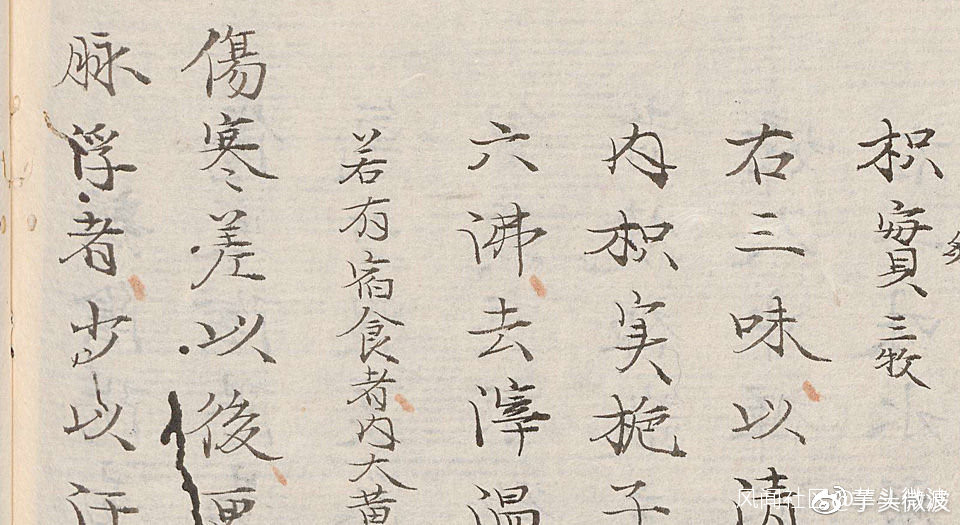 枳實 三牧
右三味以清
内枳実栀子
六沸去滓温
若有宿食者内大黄
傷寒差以後更
脉浮者少以汗
风闻社区
@芋头微波